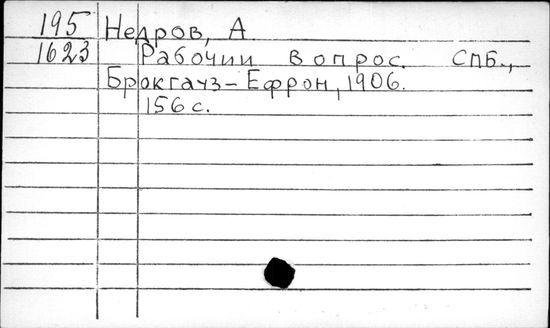 195 Недров, А.
1623 Рабочии вопрос. СПБ.,
Брокгауз-Ефрон, 1906.
156 с.